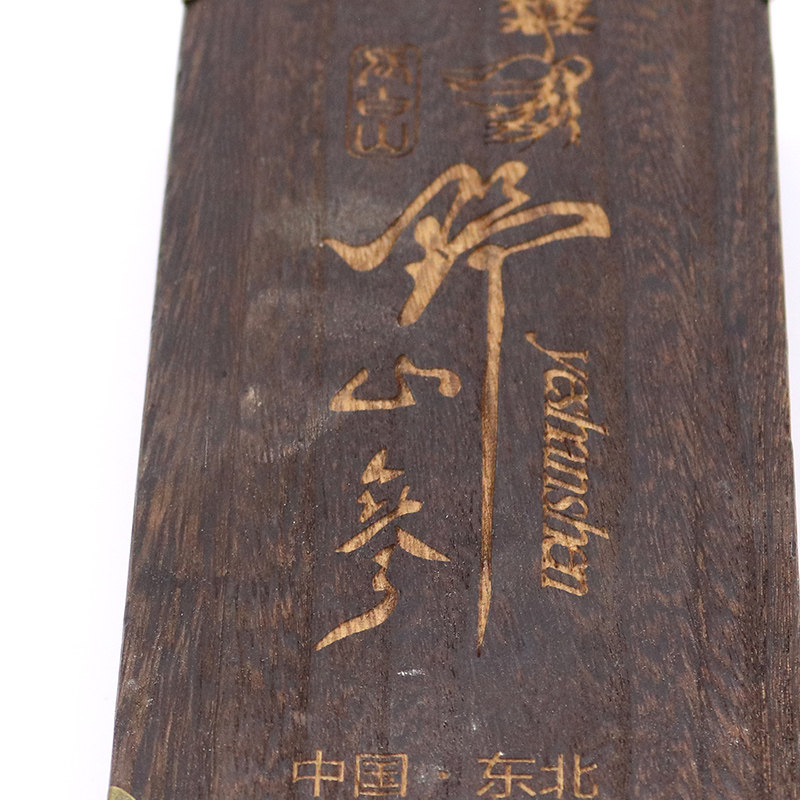 长白山
野山参
yeshanshen
中国·东北